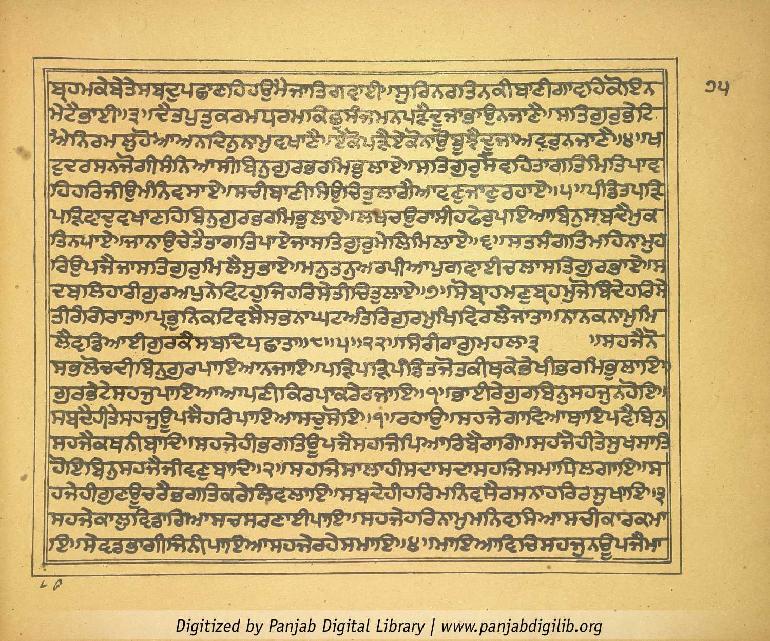 ਬ੍ਰਹਮਕੇਬੇਤੇਸਬਦੁਪਛਾਣਹਿਹਉਮੈਜਾਤਿਗਵਾਈ॥ਸੁਰਿਨਰਤਿਨਕੀਬਾਣੀਗਾਵਹਿਕੋਇਨ ੭੫
ਮੇਟੈਭਾਈ॥੩॥ਦੈਤਪੁਤੁਕਰਮਧਰਮਕਿਛੁਸੰਜਮਨਪੜੈਦੂਜਾਭਾਉਨਜਾਣੈ॥ਸਤਿਗੁਰੁਭੇਟਿ
ਐਨਿਰਮਲੁਹੋਆਅਨਦਿਨੁਨਾਮੁਵਖਾਣੈ॥ਏਕੋਪੜੈਏਕੋਨਾਉਬੂਝੈਦੂਜਾਅਵਰੁਨਜਾਣੈ॥੪॥ਖ
ਟੁਦਰਸਨਜੋਗੀਸੰਨਿਆਸੀਬਿਨੁਗੁਰਭਰਮਿਭੁਲਾਏ॥ਸਤਿਗੁਰੁਸੇਵਹਿਤਾਗਤਿਮਿਤਿਪਾਵ
ਹਿਹਰਿਜੀਉਮੰਨਿਵਸਾਏ॥ਸਚੀਬਾਣੀਸਿਉਚਿਤੁਲਾਗੈਆਵਣੁਜਾਣੁਰਹਾਏ॥੫॥ਪੰਡਿਤਪੜਿ
ਪੜਿਵਾਦੁਵਖਾਣਹਿਬਿਨੁਗੁਰਭਰਮਿਭੁਲਾਏ॥ਲਖਚਉਰਾਸੀਹਫੇਰੁਪਇਆਬਿਨੁਸਬਦੈਮੁਕ
ਤਿਨਪਾਏ॥ਜਾਨਾਉਚੇਤੈਤਾਗਤਿਪਾਏਜਾਸਤਿਗੁਰੁਮੇਲਿਮਿਲਾਏ॥੬॥ਸਤਸੰਗਤਿਮਹਿਨਾਮੁਹ
ਰਿਉਪਜੈਜਾਸਤਿਗੁਰੁਮਿਲੈਸੁਭਾਏ॥ਮਨੁਤਨੁਅਰਪੀਆਪੁਗਵਾਈਚਲਾਸਤਿਗੁਰਭਾਏ॥ਸ
ਦਬਲਿਹਾਰੀਗੁਰਅਪੁਨੇਵਿਟਹੁਜਿਹਰਿਸੇਤੀਚਿਤੁਲਾਏ॥੭॥ਸੋਬ੍ਰਾਹਮਣੁਬ੍ਰਹਮੁਜੋਬਿੰਦੇਹਰਿਸੇ
ਤੀਰੰਗਿਰਾਤਾ॥ਪ੍ਰਭੁਨਿਕਟਿਵਸੈਸਭਨਾਘਟਅੰਤਰਿਗੁਰਮੁਖਿਵਿਰਲੈਜਾਤਾ॥ਨਾਨਕਨਾਮੁਮਿ
ਲੈਵਡਿਆਈਗੁਰਕੈਸਬਦਿਪਛਾਤਾ॥੮॥੫॥੨੨॥ਸਿਰੀਰਾਗੁਮਹਲਾ੩ ॥ਸਹਜੈਨੋ
ਸਭਲੋਚਦੀਬਿਨੁਗੁਰਪਾਇਆਨਜਾਇ॥ਪੜਿਪੜਿਪੰਡਿਤਜੋਤਕੀਥਕੇਭੇਖੀਭਰਮਿਭੁਲਾਇ॥
ਗੁਰਭੇਟੇਸਹਜੁਪਾਇਆਆਪਣੀਕਿਰਪਾਕਰੇਰਜਾਇ॥੧॥ਭਾਈਰੇਗੁਰਬਿਨੁਸਹਜੁਨਹੋਇ॥
ਸਬਦੈਹੀਤੇਸਹਜੁਊਪਜੈਹਰਿਪਾਇਆਸਚੁਸੋਇ॥੧॥ਰਹਾਉ॥ਸਹਜੇਗਾਵਿਆਥਾਇਪਵੈਬਿਨੁ
ਸਹਜੈਕਥਨੀਬਾਦਿ॥ਸਹਜੇਹੀਭਗਤਿਊਪਜੈਸਹਜਿਪਿਆਰਿਬੈਰਾਗਿ॥ਸਹਜੈਹੀਤੇਸੁਖਸਾਤਿ
ਹੋਇਬਿਨੁਸਹਜੈਜੀਵਣੁਬਾਦਿ॥੨॥ਸਹਜਿਸਾਲਾਹੀਸਦਾਸਦਾਸਹਜਿਸਮਾਧਿਲਗਾਇ॥ਸ
ਹਜੇਹੀਗੁਣਊਚਰੈਭਗਤਿਕਰੇਲਿਵਲਾਇ॥ਸਬਦੇਹੀਹਰਿਮਨਿਵਸੈਰਸਨਾਹਰਿਰਸੁਖਾਇ॥੩
ਸਹਜੇਕਾਲੁਵਿਡਾਰਿਆਸਚਸਰਣਾਈਪਾਇ॥ਸਹਜੇਹਰਿਨਾਮੁਮਨਿਵਸਿਆਸਚੀਕਾਰਕਮਾ
ਇ॥ਸੇਵਡਭਾਗੀਜਿਨੀਪਾਇਆਸਹਜੇਰਹੇਸਮਾਇ॥੪॥ਮਾਇਆਵਿਚਿਸਹਜੁਨਊਪਜੈਮਾ
Digitized by Panjab Digital Library | www.panjabdigilib.org